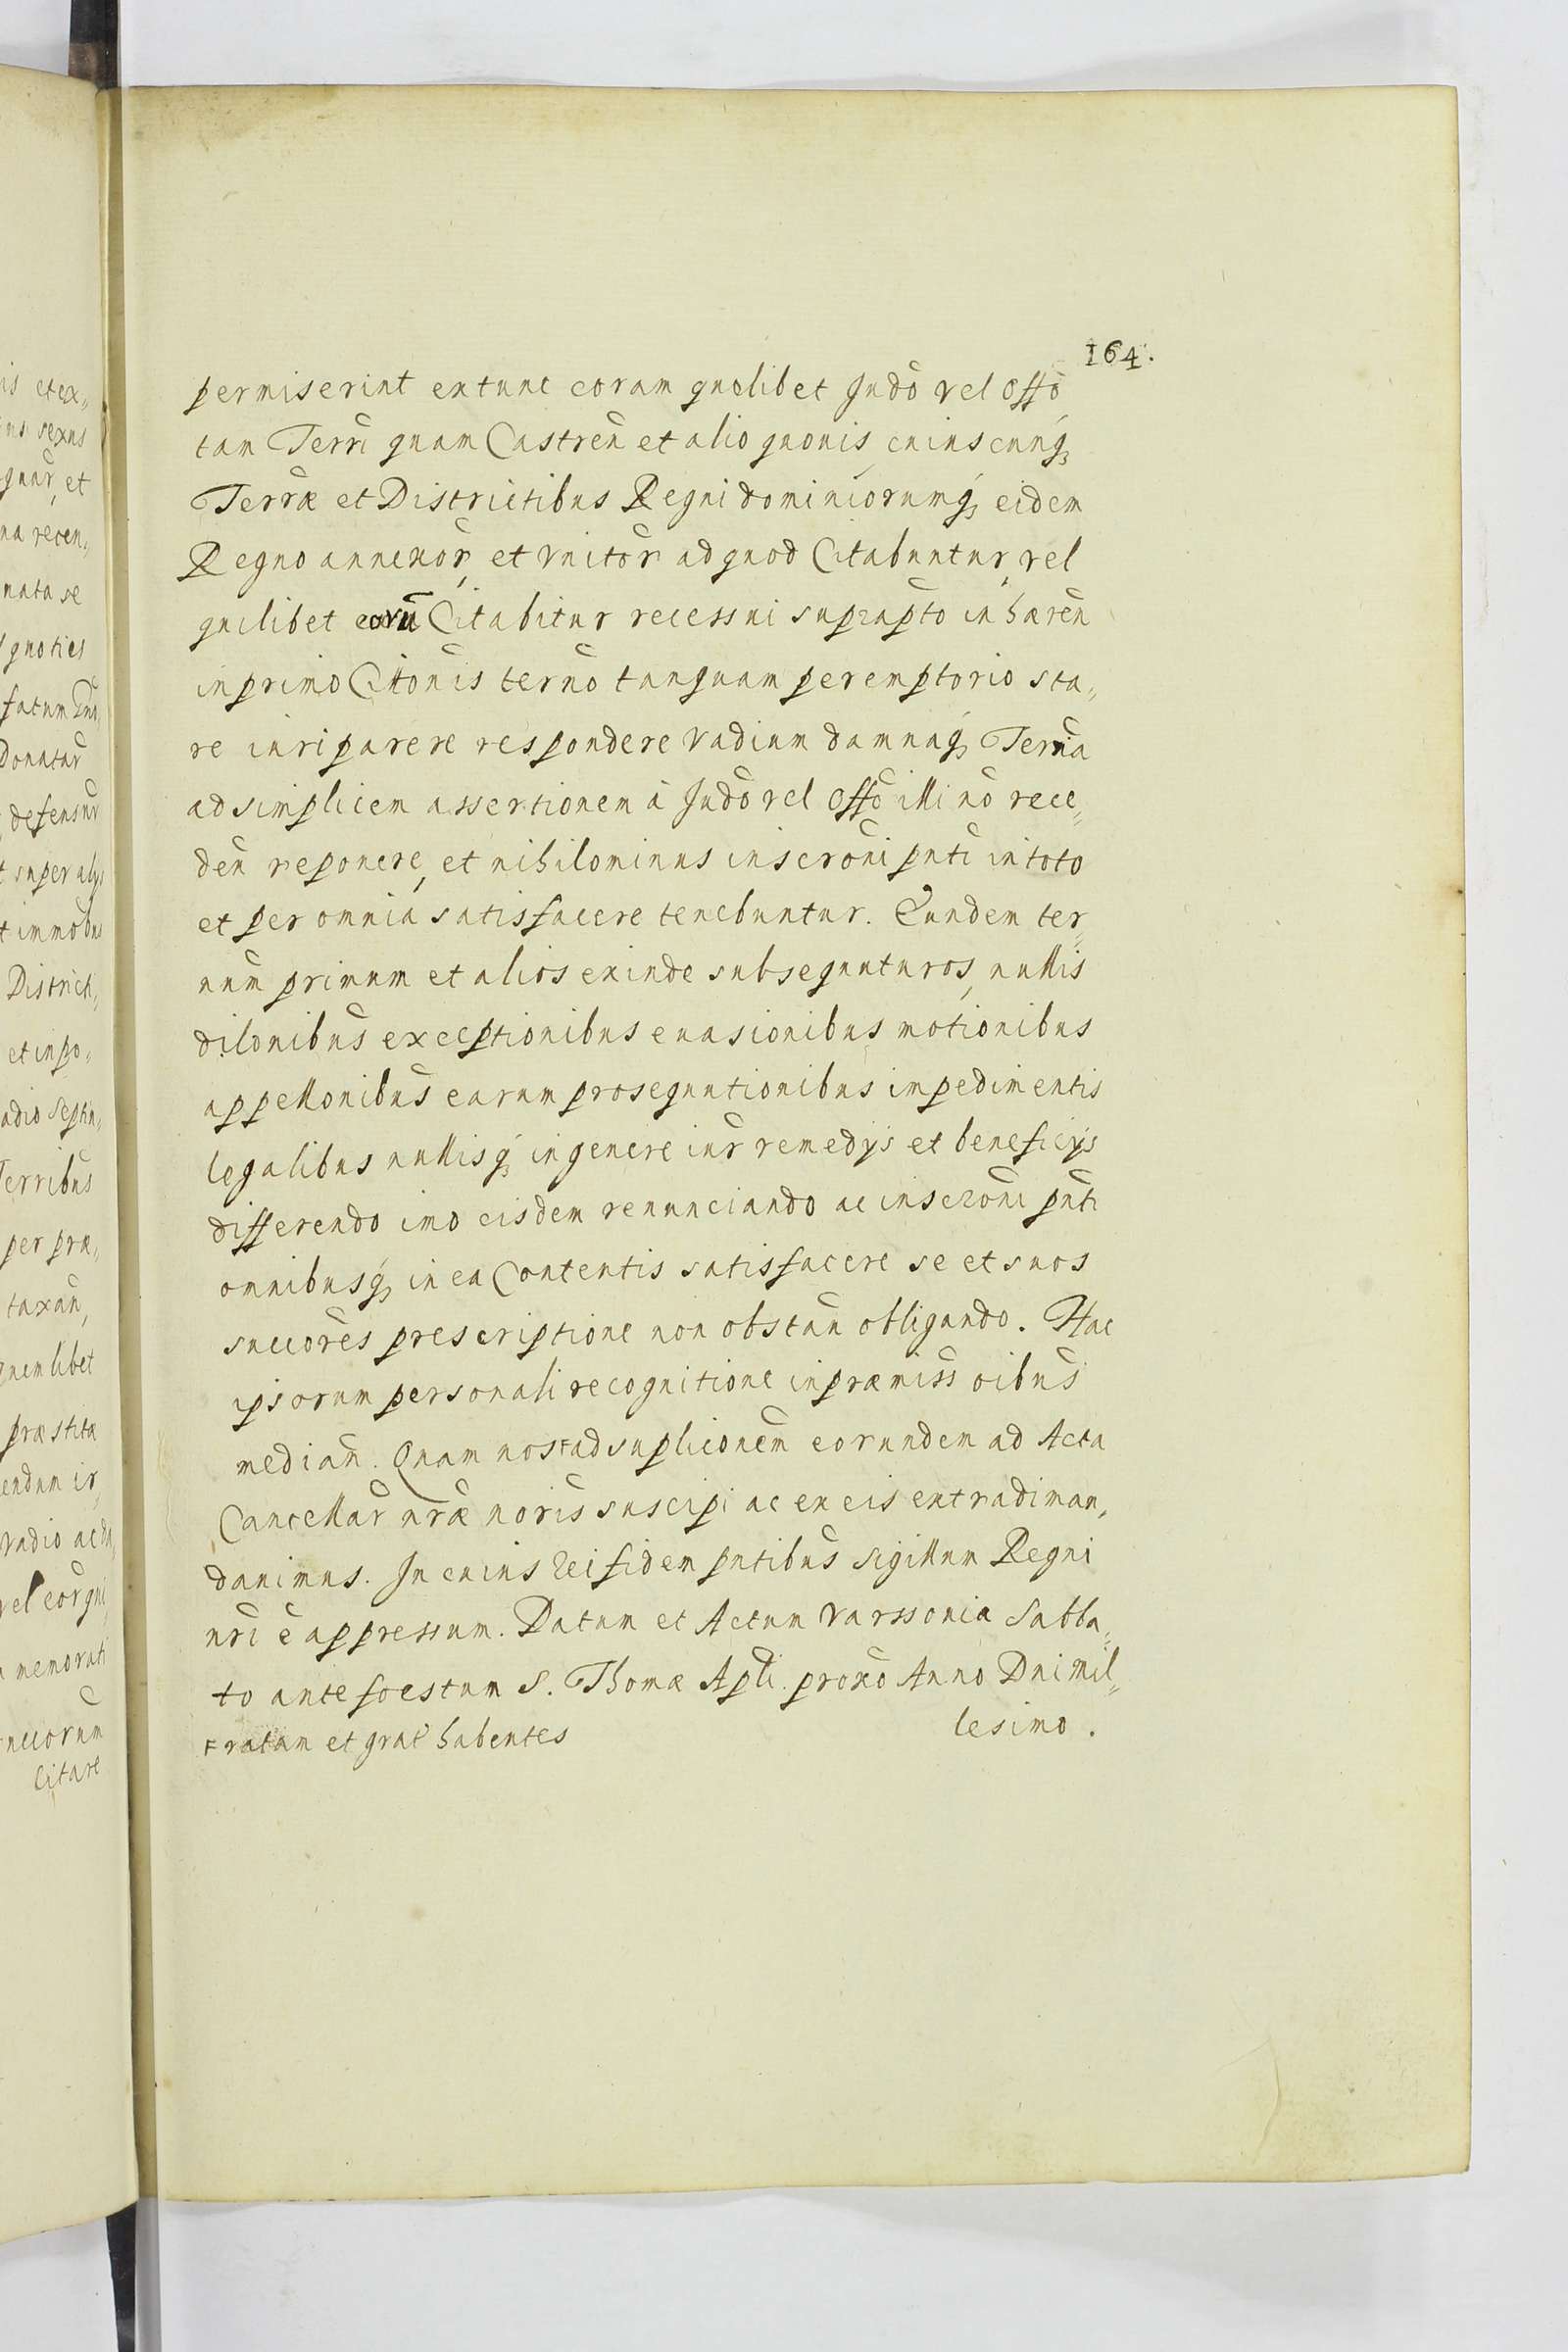 164.
permiserint extunc coram quolibet Judõ vel Offõ
tam Terri quam Castreñ et alio quouis, cuiuscunq́
Terræ et Districtibus Regni dominiorumq́ eidem
Regno annexor̃, et vnitor̃ ad quod Citabuntur, vel
quilibet eorũ Citabitur recessui suprapt̃o inhæreñ
in primo Citt̃onis term̃o tanquam peremptorio sta„
re iuri parere respondere vadium damnaq́ Term̃a
ad simplicem assertionem à Judõ vel Offõ illi nõ rece„
deñ reponere, et nihilominus inscrõni pñti in toto
et per omnia satisfacere tenebuntur. Eundem ter„
num primum et alios exinde subsequuturos, nullis
dilonibus̃ exceptionibus euasionibus motionibus
appellonibus̃ earum prosequutionibus impedimentis
legalibus nullisq́ in genere iur̃ remedijs et beneficijs
differendo imo eisdem renunciando ac inscrõni pñti
omnibusq́ in ea Contentis satisfacere se et suos
succores̃ prescriptione non obstañ obligando. Hac
ipsorum personali recognitione in præmiss oibus̃
mediañ. Quam nos ꜰ ad suplicionem̃ eorundem ad Acta
Cancellar̃ nr̃æ noris̃ suscipi ac ex eis extradi man„
dauimus. In cuius rei fidem pñtibus̃ sigillum Regni
nr̃i ẽ appressum. Datum et Actum Varssouia Sabba„
to ante foestum S. Thomæ Apl̃i proxõ Anno Dñi mil„
lesimo.
ꜰ ratam et grat̃ habentes
is et ex„
ns sexus
quur̃, et
na recen„
nata se
quoties
fatum
Donatar̃
defensur̃
t super alijs
t immõbus
District„
et in po„
adio septin„
Terribus̃
per præ„
taxañ,
quemlibet
præstitæ
endum ir
vadio ac da
vel eor̃ qui
memorati
uccorum̃
Citare